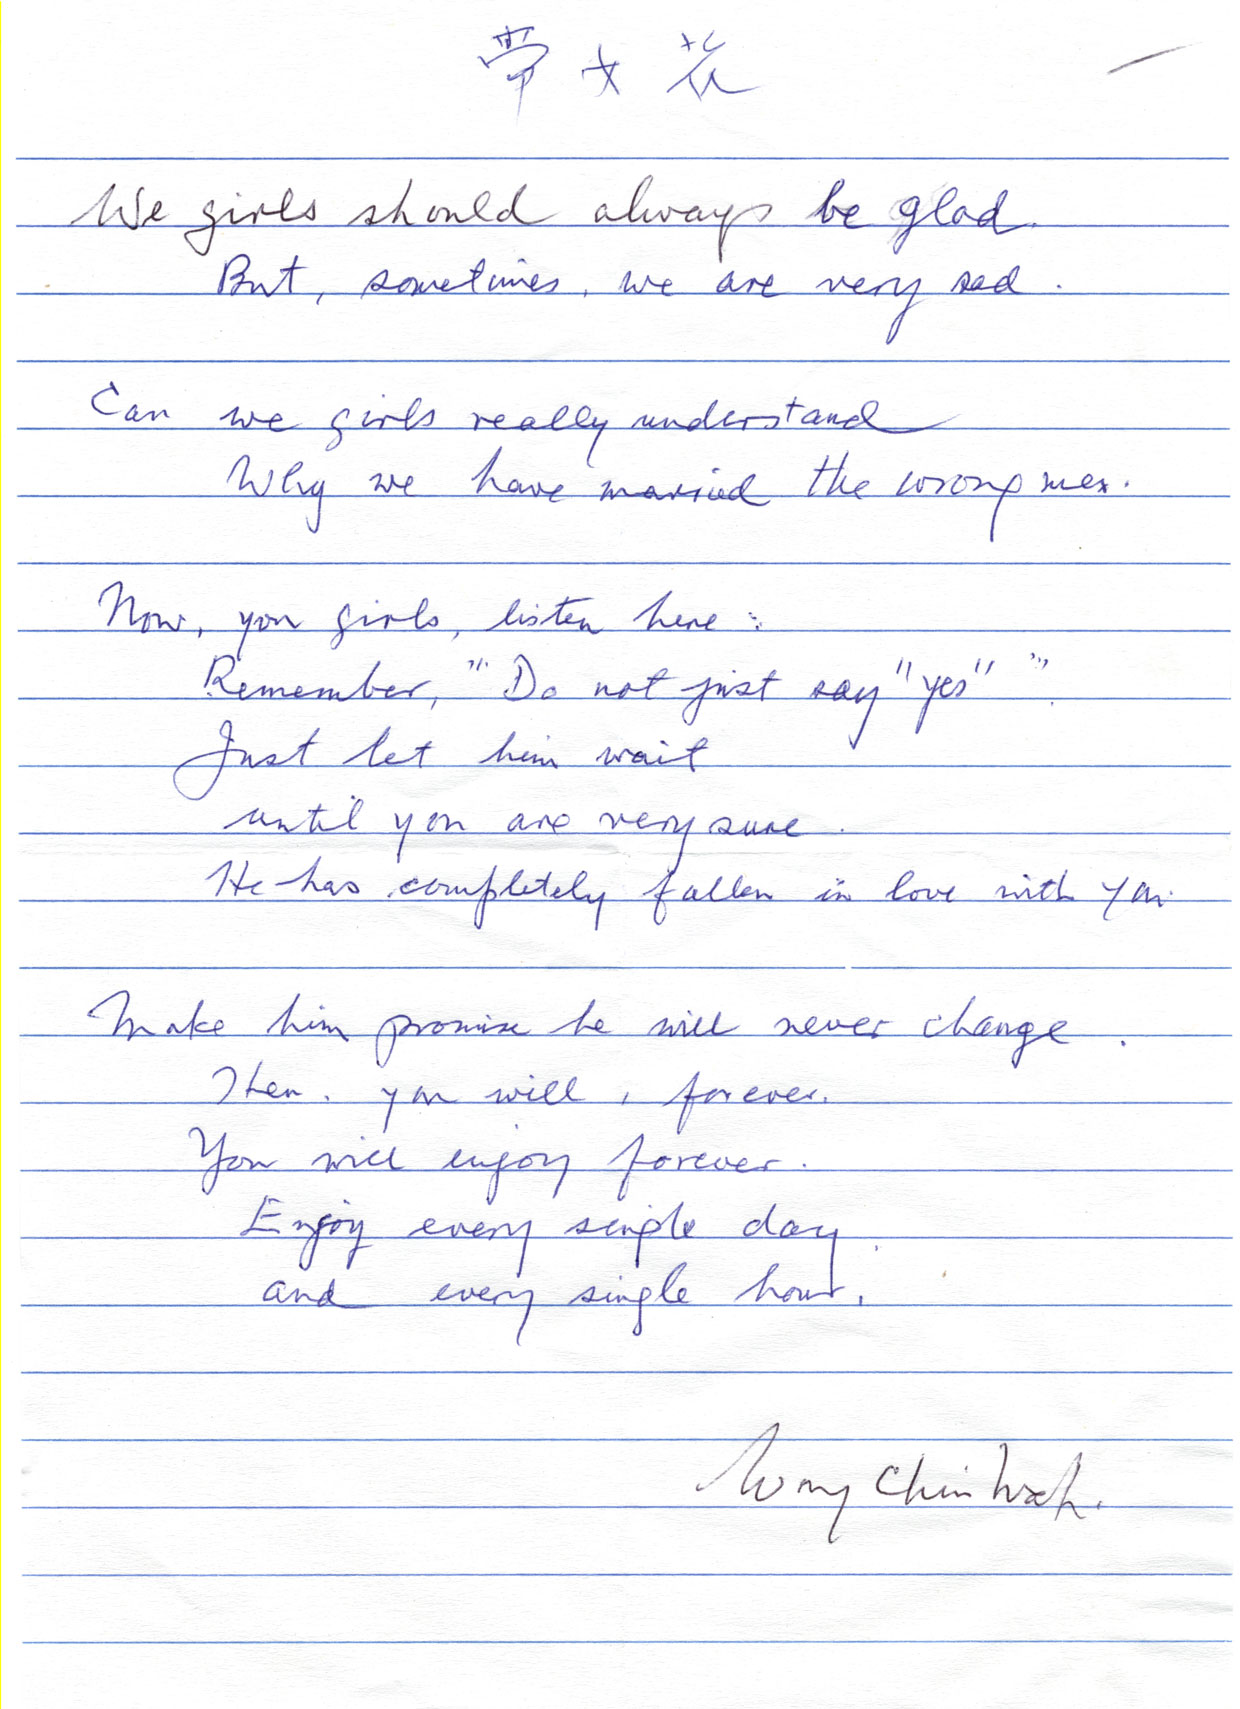 女花
We girls should always be glad.
But, sometimes, we are very sad.
Can we girls really understand
Why we have married the wrong men.
Now, you girls, listen here :
Remember, "'Do not just say "yes" '".
Just let him wait
until you are very sure.
He has completely fallen in love with you.
Make him promise he will never change.
Then, you will, forever.
You will enjoy forever.
Enjoy every single day,
and every single hour.
Wong Chin Wah.